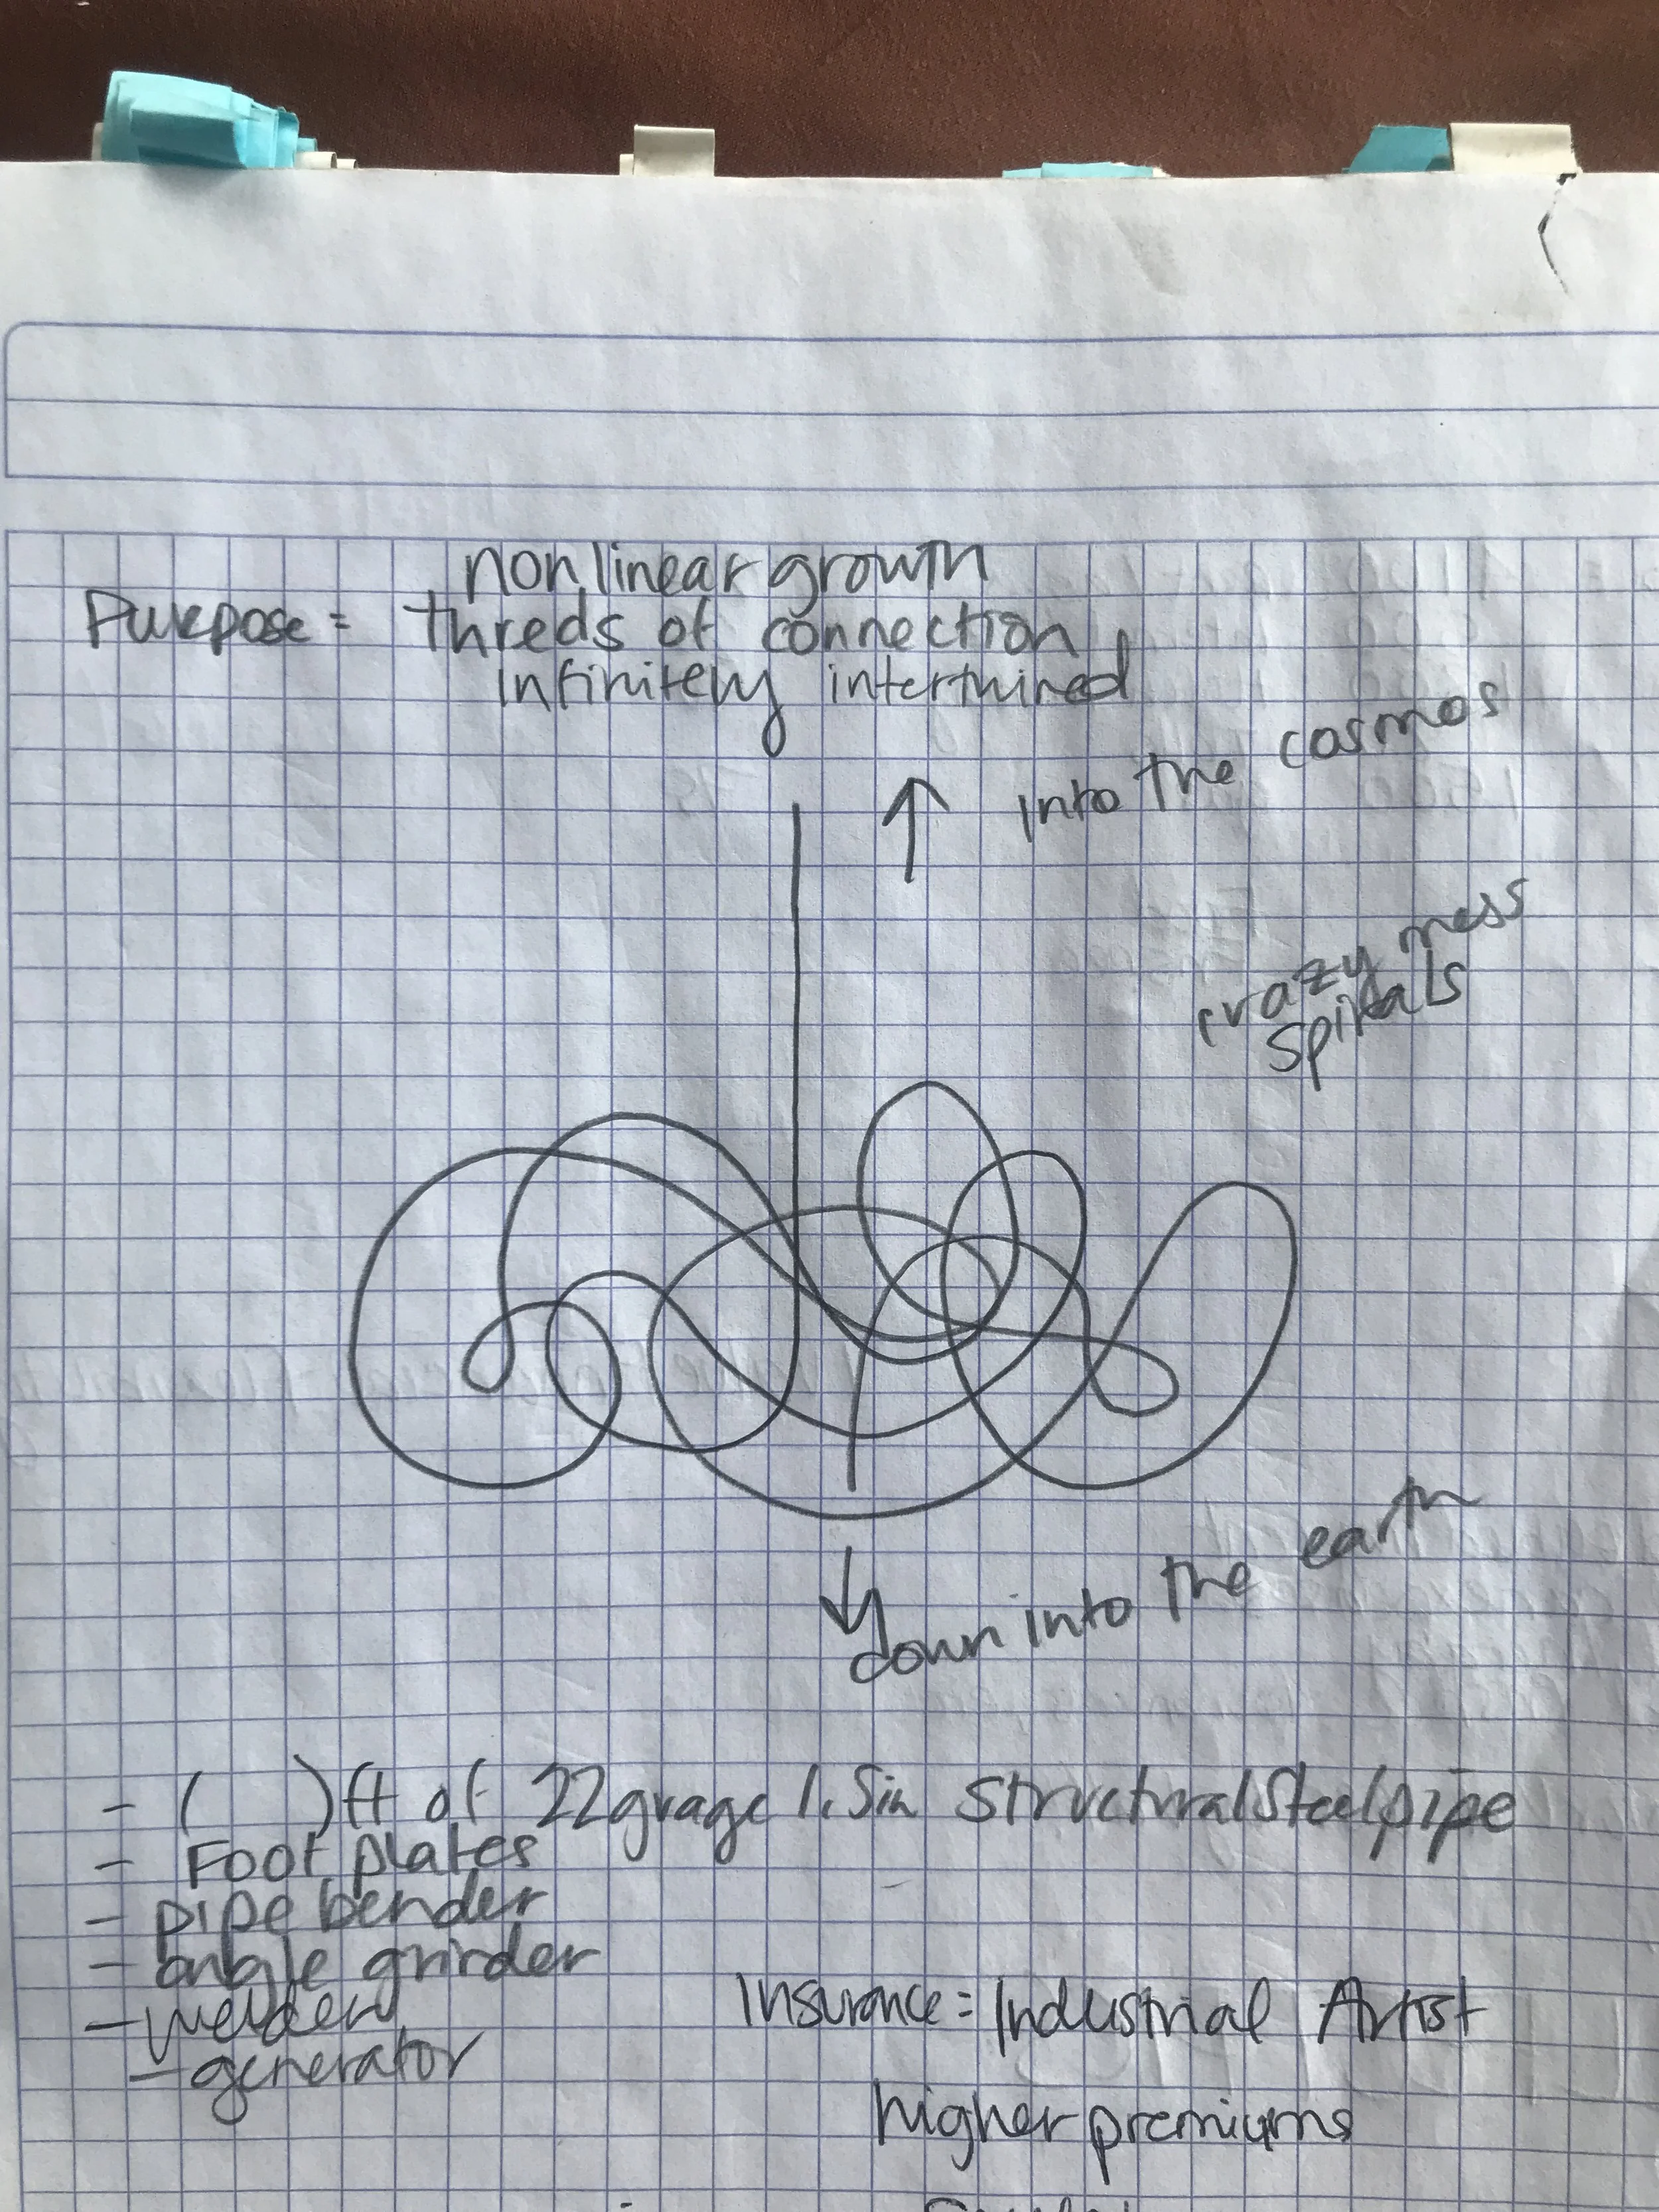 nonlinear growth
Purpose = threds of connection,
infinitely intertwined
into the cosmos
crazy mess
spirals
down into the earth
- (    ) ft of 22 gauge 1.5in structural Steel pipe
- Foot plates
- pipe bender
- angle grinder
- welder
- generator
Insurance = Industrial Artist
higher premiums